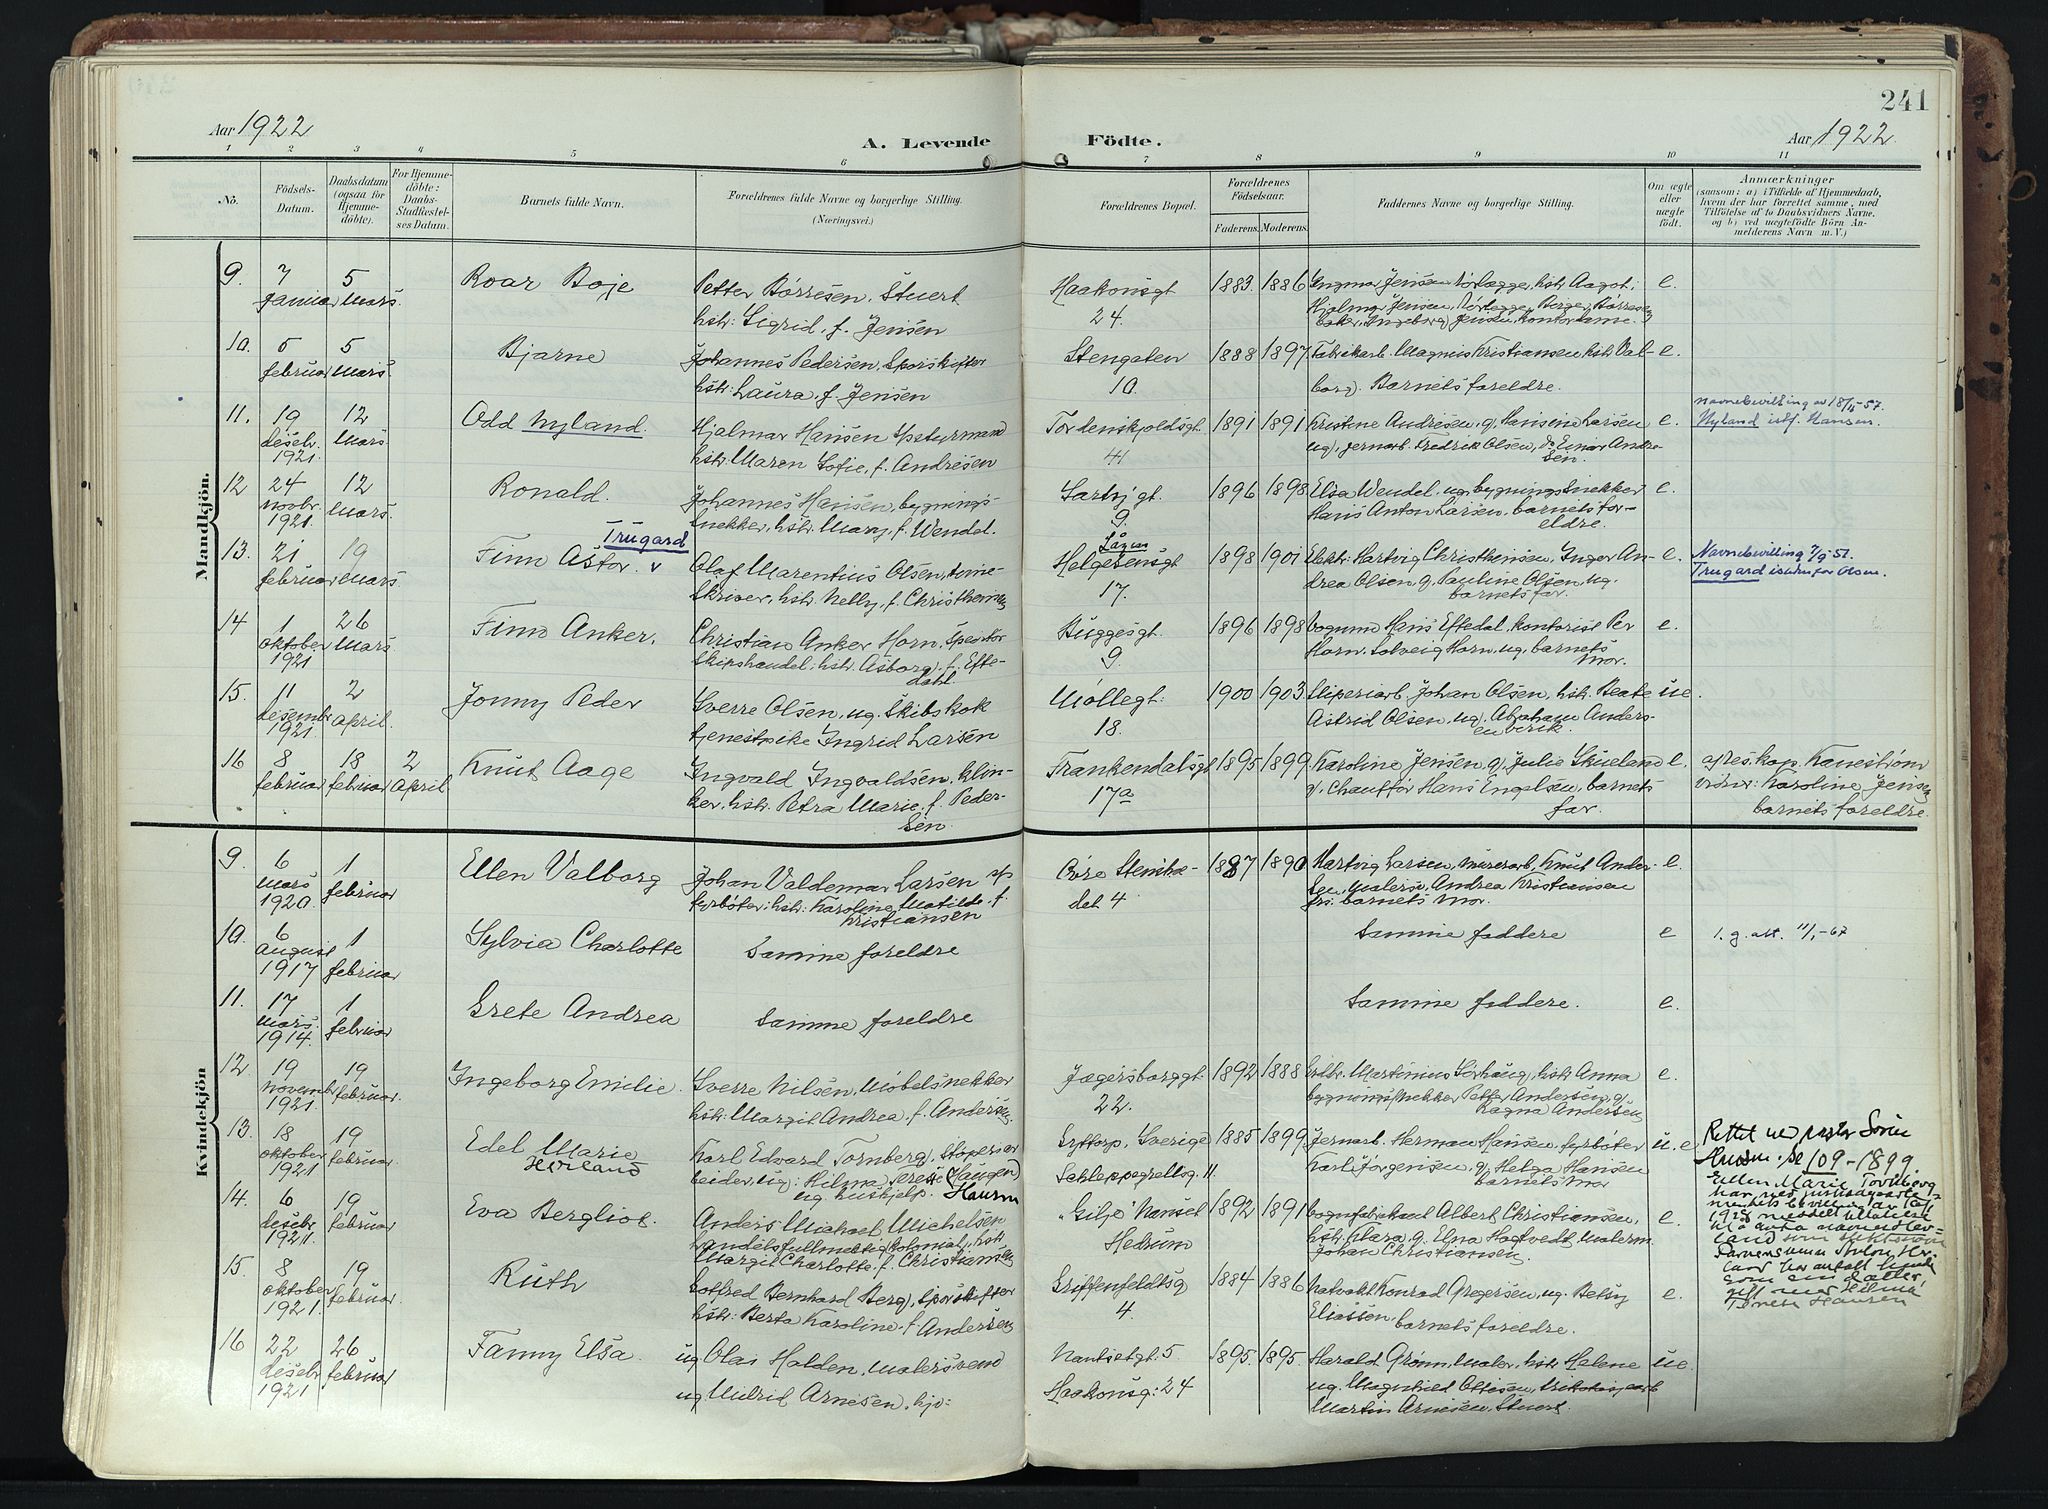 241
Aar 1922
A. Levende
Födte.
Aar 1922.
1 2 3 4 5 6 7 8 9 10 11
No.
Födsels-Datum.
Daabsdatum (ogsaa for Hjemmedöbte).
For Hjemmedöbte: Daabs-Stadfæstelses Datum.
Barnets fulde Navn.
Forældrenes fulde Navne og borgerlige Stilling.
(Næringsvei.)
Forældrenes Bopæl.
Forældrenes Födselsaar.
Faderens. Moderens.
Faddernes Navne og borgerlige Stilling.
Om ægte eller uægte födt.
Anmærkninger
(saasom: a) i Tilfælde af Hjemmedaab,
hvem der har forrettet samme, med
Tilföielse af to Daabsvidners Navne,
og b) ved uægtefödte Börn Anmelderens Navn m. V.)
Mandkjön.
9. 7 januar 5 mars. Roar Boje
Petter Børresen, Stuert
hstr: Sigrid, f. Jensen
Haakonsgt 24. 1883. 1886
Ingmar Jensen, rørlægger, hstr Aagot,
Hjalmar Jensen, rørlegger, Berger Børresen
baker, Ingeborg Jensen, kontordame. e.
10. 6 februar 5 mars. Bjarne
Johannes Pedersen, Sporskifter
hstr: Laura, f. Jensen
Stengaten 10. 1888 1897
Fabrikarb. Magnus Kristiansen hstr Valborg. Barnets foreldre. e.
11. 19 desebr. 1921. 12 mars Odd Nyland.
Hjalmar Hansen
hstr. Maren Sofie, f. Andresen
Tordenskjoldsgt. 1891 1891
Kristine Andresen, og Hansine Larsen
ug, jernarb. Fredrik Olsen, do Einar Andresen. e.
Navnebevilling av 18/11-57.
Nyland istf. Hansen.
12 24 novbr. 1921. 12 mars. Ronald.
Johannes Hansen, bygningssnekker, hstr. Mary, f. Wendel.
9. 1896 1898
Elsa Wendel, ug, bygningssnekker
Hans Anton Larsen, barnets foreldre. e.
13. 21 februar 19 mars Finn Astor. v Trugard
Olaf Marentius Olsen,
skriver, hstr. Nelly, f. Christhensen
Helgesensgt 17. 1898 1901
Elektr. Hartvig Christhensen, Inger Andrea Olsen og Pauline Olsen, ug.
barnets far. e.
Navnebevilling 7/9 51.
Trugard isteden for Olsen.
14 1 oktober 1921 26 mars Finn Anker.
Christian Anker Horn,
skipshandel, hstr. Asborg, f. Eftedahl.
Buggesgt. 9. 1896 1898
Hans Eftedal, kontorist Per
Horn. Solveig Horn, ug, barnets
mor. e.
15. 11 desembr. 1921 2 april. Jonny Peder
Sverre Olsen, ug. Skibskok
tjenestpike Ingrid Larsen
Møllegt: 18. 1900 1903.
Sliperiarb. Johan Olsen, hstr. Beate
Astrid Olsen, ug, Abraham Andersen ue.
16 8 februar 18 februar 2 April Knut Aage
Ingvald Ingvaldsen, klinker, hstr, Petra Marie, f. Pedersen.
Frankendalsgt 17a 1895 1899
Karoline Jensen, og Julie Skueland
og Chauffør Hans Engelsen, barnets
far. e.
af res. kap. Kanestrøm
Karoline Jensen
barnets foreldre.
Kvindekjön
9. 6 mars 1920. 1 februar Ellen Valborg
Johan Valdemar Larsen
fyrbøter, hstr: Karoline Matilde f.
Kristiansen
Øvre det 4 1887 1890
Hartvig Larsen, murerarb, Knut Andersen, malersv. Andrea Kristiansen
frs. barnets mor. e.
10. 6 august 1917 1 februar. Sylvia Charlotte
Samme foreldre
Samme faddere e
1. g. att. 11/1-67
11. 17 mars 1914. 1 februar Grete Andrea
Samme foreldre
Samme faddere. e.
12. 19 novembr. 1921. 19 februar. Ingeborg Emilie.
Sverre Nilsen, Møbelsnekker
hstr: Margit Andrea, f. Andersen
Jægersborggt. 22. 1892 1888
Martinius Sørhaug, hstr Anna
bygningssnekker Petter Andersen, og
Ragna Andersen e.
13. 18 oktober 1921. 19 februar. Edel Marie
Herland
Karl Edvard Tornberg, Støperiarbeider, ug: Hilma Terese (Haugen)
ug. hushjelp. Hansen
Gyttorp, Sverige
Schleppegrellsg. 11. 1885 1899
Jernarb. Herman Hansen, fyrbøter
Karl Jørgensen, og Helga Hansen
barnets mor u. e
Rettet ved
109 - 1899.
Ellen Marie Tornberg
har ved justisdepartementets bevilling av
til å anta navnet Herland som slektsnavn
som sin datter,
gift med Hilma
Terese Hansen
14. 6 desebr. 1921. 19 februar Eva Bergliot.
Anders Michael Michelsen
handelsfullmektig kolonial, hstr
Margit Charlotte, f. Christiansen
"Gilje" Nanset
Hedrum 1892 1891
vognfabrikant Albert Christiansen,
hstr. Klara, og Elna Hagtvedt, Malerm.
Johan Christiansen. e.
15. 8 oktober 1921. 19 februar. Ruth
Gotfred Bernhard Berg, Sporskifter
hstr. Berta Karoline, f. Andersen
Griffenfeldtsg 4. 1884 1886
Konrad Gregersen, ug. Betsy
Eliassen, barnets foreldre. e.
16 22 desebr. 1921 26 februar Fanny Elsa.
ug Olai Halden, malersvend
ug. Arnesen.
Nansetgt: 5.
Haakonsg: 24 1895. 1895.
Harald Grønn, Maler, hstr Helene
ug. Magnhild Ottesen,
Martin Arnesen, Stuert. ue.